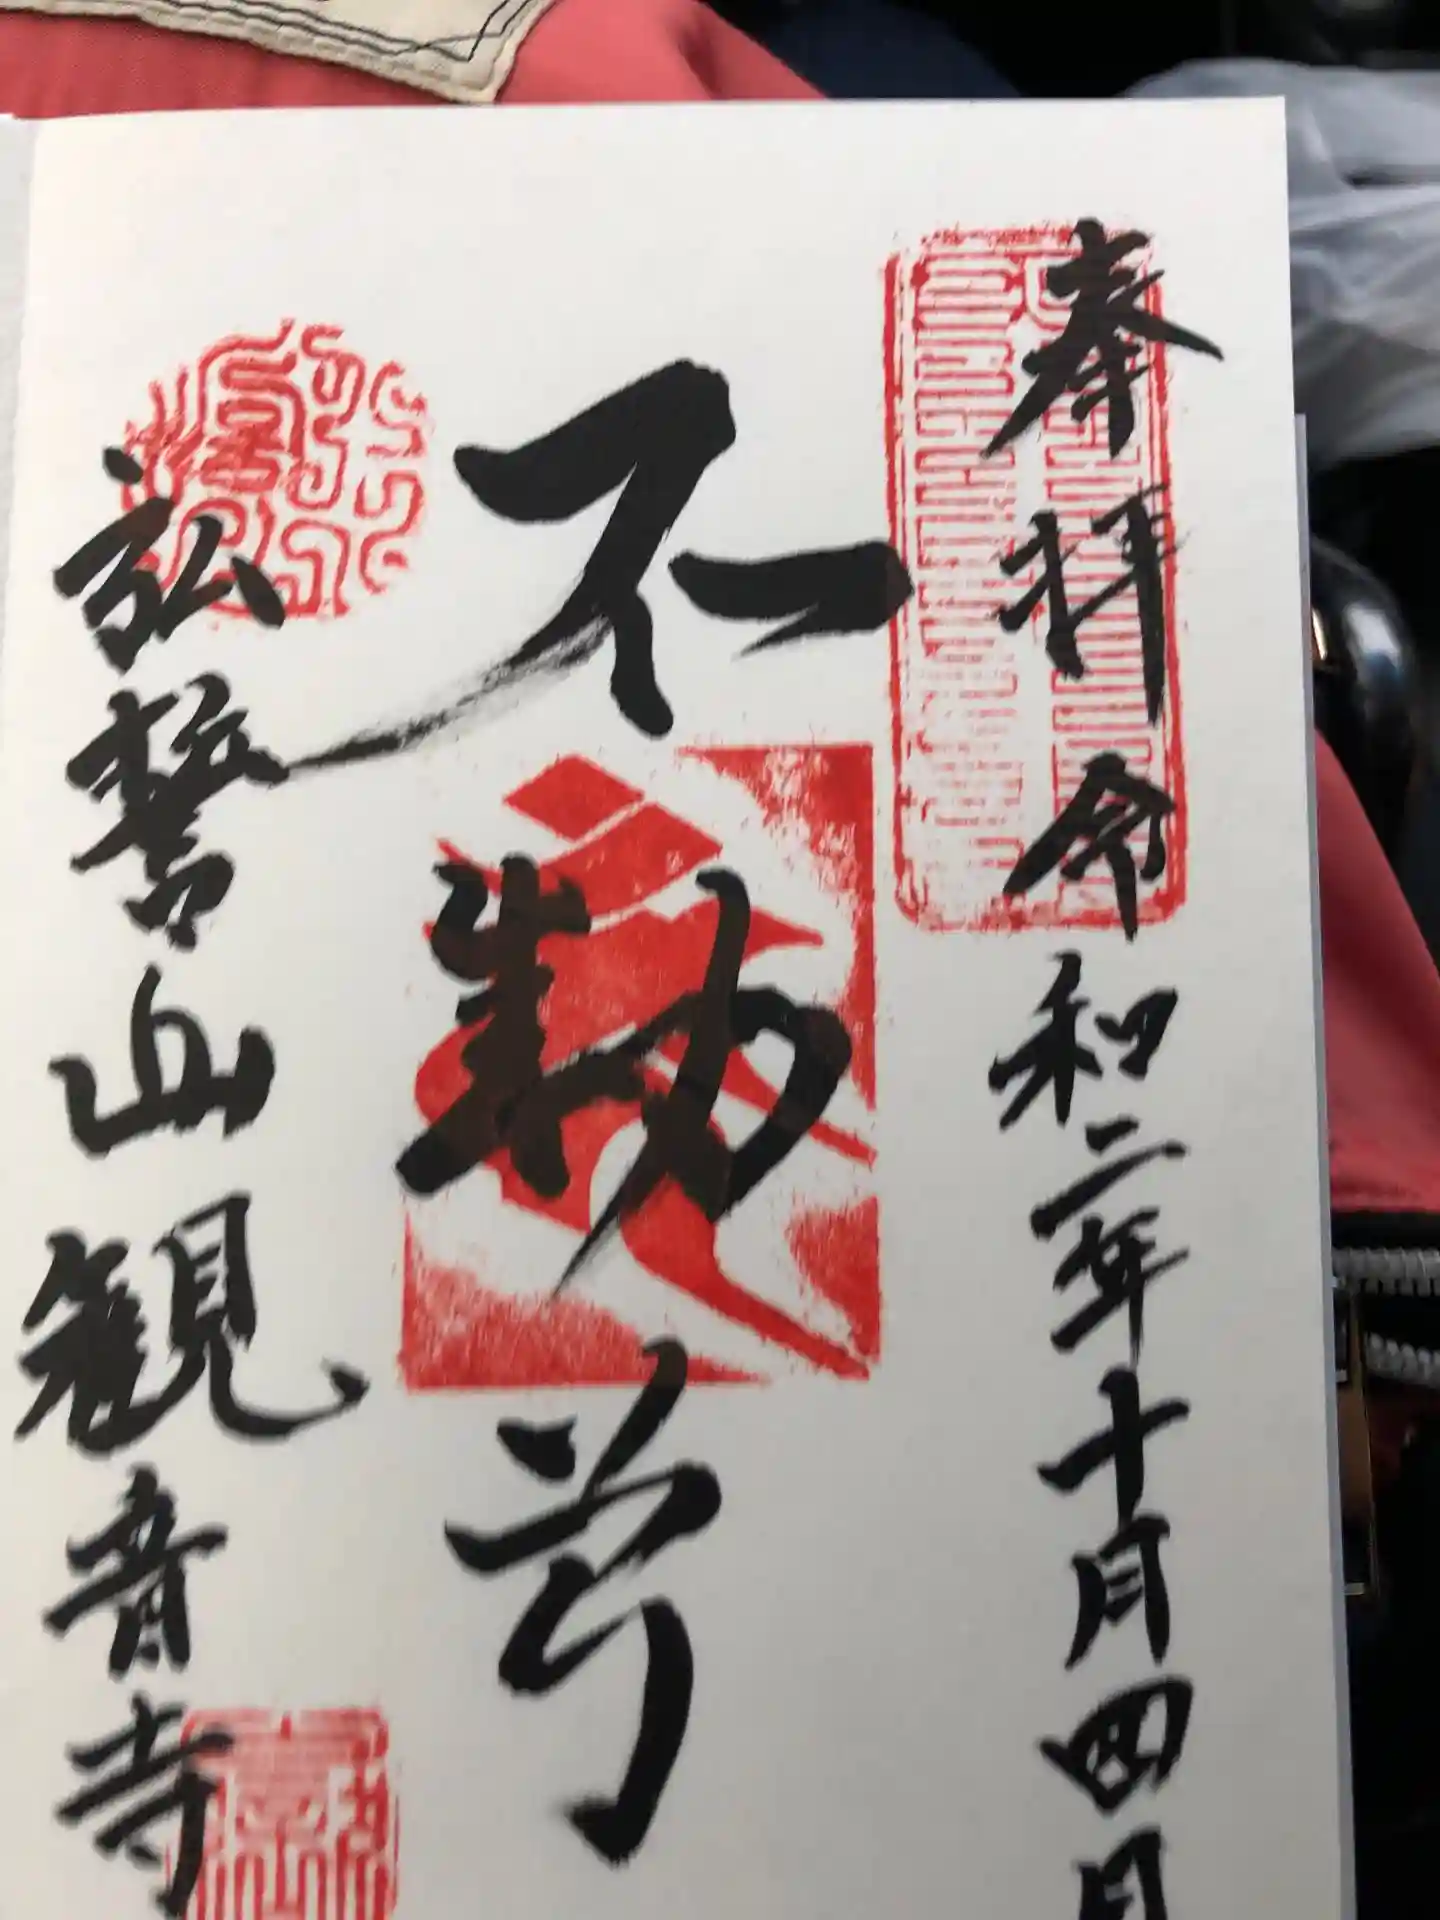 奉拝 令和二年十月四日
不動尊
弘誓山観音寺